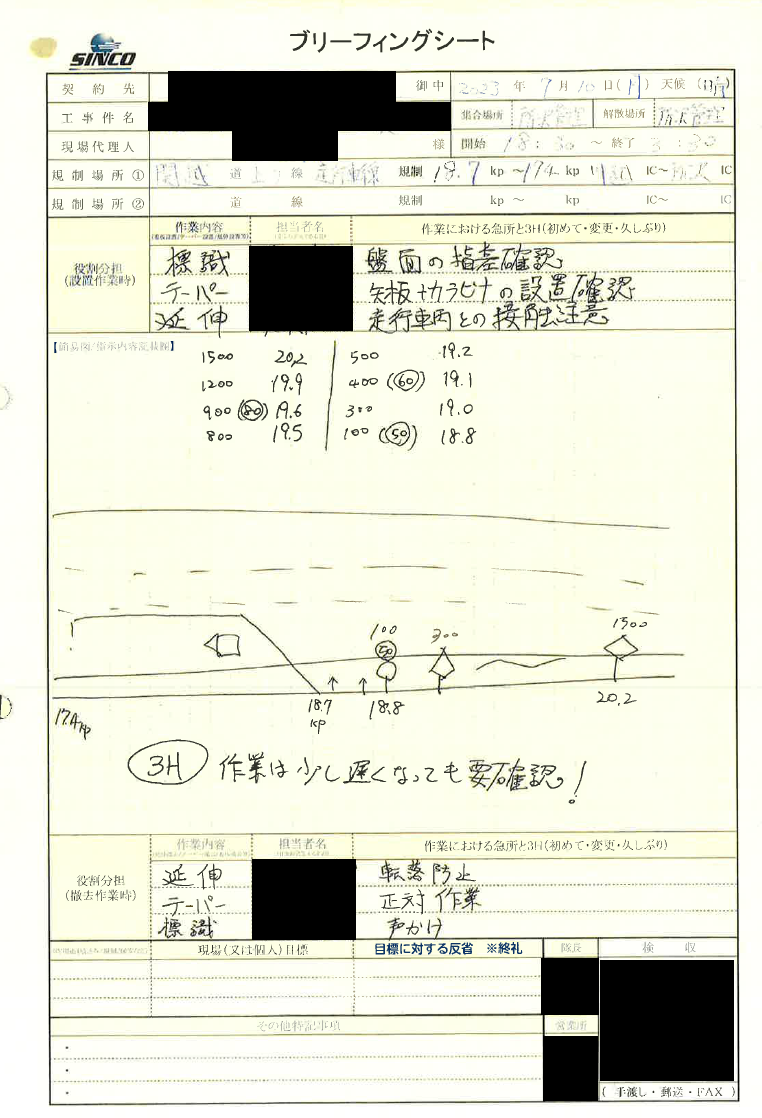 SINCO
ブリーフィングシート
契約先 御中 2023年 7月10日(月) 天候(晴)
工事件名 集合場所 所沢管理 解散場所 所沢管理
現場代理人 様 開始 18:30 ~ 終了 3:30
規制場所① 関越 道 上り 線 規制 18.7 kp ~17.4 kp 川越 IC~ 所沢 IC
規制場所② 道 線 規制 kp ~ kp IC~ IC
役割分担
(設置作業時)
作業内容 担当者名 作業における急所と3H(初めて・変更・久しぶり)
標識 盤面の指差確認
テーパー 矢板+カラビナの設置確認
延伸 走行車両との接触注意
【簡易図/指示内容記載欄】
1500 20.2 500 19.2
1200 19.9 400 (60) 19.1
900 (80) 19.6 300 19.0
800 19.5 100 (50) 18.8
100 300 1500
50
17.4kp 18.7kp 18.8 20.2
3H 作業は少し遅くなっても要確認!
役割分担
(撤去作業時)
作業内容 担当者名 作業における急所と3H(初めて・変更・久しぶり)
延伸 転落防止
テーパー 正対作業
標識 声かけ
現場(又は個人)目標 目標に対する反省 ※終礼 隊長 検収
その他特記事項 営業所
(手渡し・郵送・FAX)